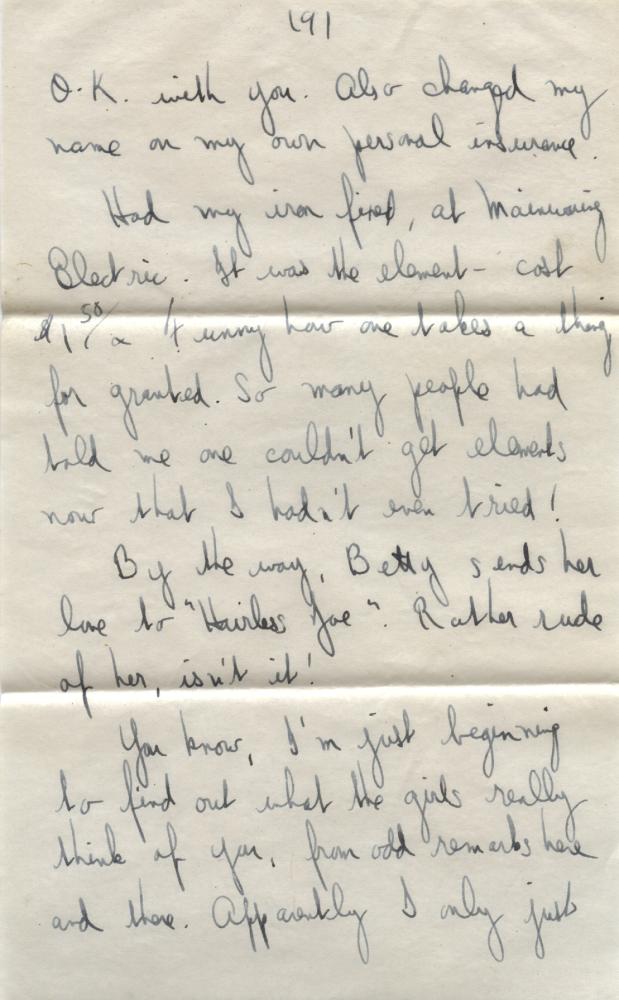 (9)
O.K. with you. Also changed my
name on my own personal insurance.
Had my iron fixed, at Mainwaring
Electric. It was the element - cost
$1 50/x Funny how one takes a thing
for granted. So many people had
told me one couldn't get elements
now that I hadn't even tried!
By the way, Betty sends her
love to "Hairless Joe". Rather rude
of her, isn't it!
You know, I'm just beginning
to find out what the girls really
think of you, from odd remarks here
and there. Apparently I only just